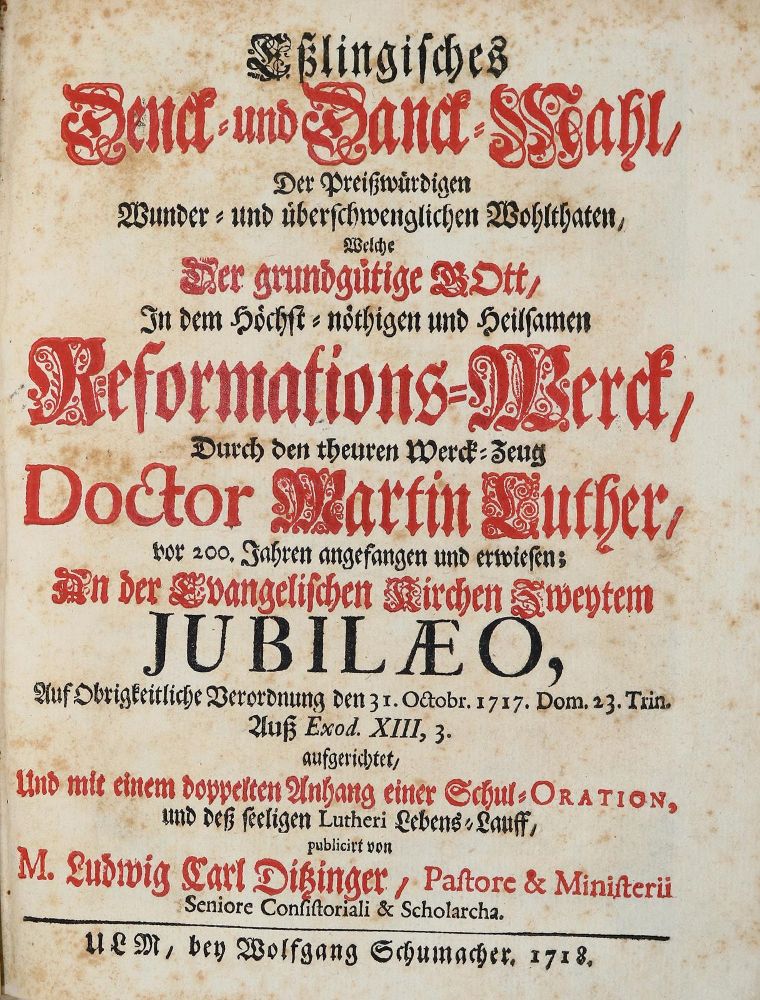 Eßlingisches
Denck-und Danck-Mahl,
Der Preißwürdigen
Wunder- und überschwenglichen Wohlthaten,
Welche
Der grundgütige GOtt,
In dem Höchst-nöthigen und Heilsamen
Reformations-Werck,
Durch den theuren Werck-Zeug
Doctor Martin Luther,
vor 200. Jahren angefangen und erwiesen;
An der Evangelischen Kirchen Zweytem
JUBILÆO,
Auf Obrigkeitliche Verordnung den 31. Octobr. 1717. Dom. 23. Trin.
Auß Exod. XIII, 3.
aufgerichtet,
Und mit einem doppelten Anhang einer Schul-ORATION,
und deß seeligen Lutheri Lebens-Lauff,
publicirt von
M. Ludwig Carl Ditzinger, Pastore & Ministerii
Seniore Consistoriali & Scholarcha.
ULM, bey Wolfgang Schumacher. 1718.